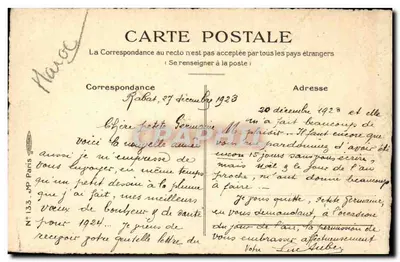 Maroc
CARTE POSTALE
La Correspondance au recto n'est pas acceptée par tous les pays étrangers
(Se renseigner à la poste)
Correspondance
Adresse
Rabat, 27 décembre 1923
Chère petite Germaine
Voici la nouvelle année
aussi je m'empresse de
vous envoyer, en même temps
qu'un petit dessin à la plume
que j'ai fait, mes meilleurs
vœux de bonheur & de santé
pour 1924. Je viens de
recevoir votre gentille lettre du
20 décembre 1923 et elle
m'a fait beaucoup de
plaisir. Il faut encore que
vous pardonniez et avoir été
encore 15 jours sans vous écrire,
mais Noël & le jour de l'an
proche, m'ont donné beaucoup
à faire.
Je vous quitte, petite Germaine,
en vous demandant, à l'occasion
du jour de l'an, la permission de
vous embrasser affectueusement
Votre
N° 133 - Mo Paris